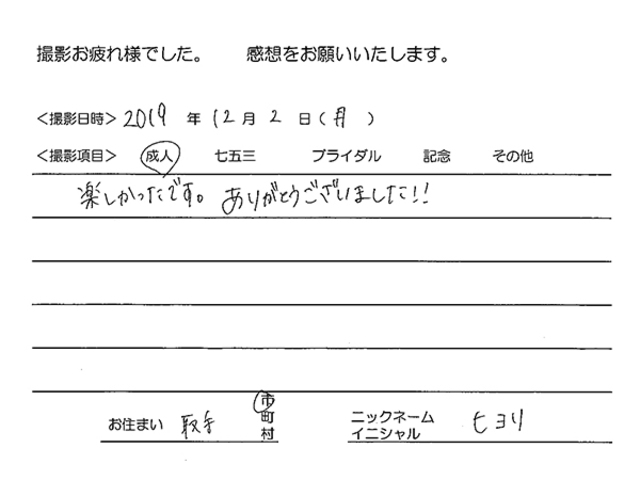 撮影お疲れ様でした。 感想をお願いいたします。
＜撮影日時＞ 2019 年 12月 2 日（月）
＜撮影項目＞ 成人 七五三 ブライダル 記念 その他
楽しかったです。ありがとうございました!!
お住まい 取手 市町村 ニックネーム イニシャル ヒヨリ